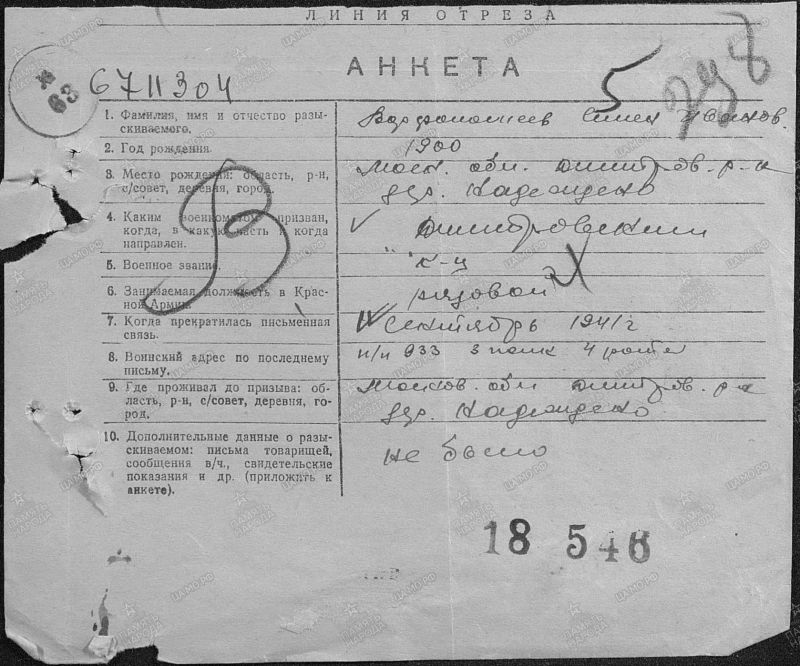 ЛИНИЯ ОТРЕЗА
АНКЕТА
№ 63
6711304
5
1. Фамилия, имя и отчество разы-
скиваемого.
2. Год рождения.
1900
3. Место рождения: область, р-н,
с/совет, деревня, город.
Моск. обл. Дмитров. р-н
дер. Надеждено
4. Каким военкоматом призван,
когда, в какую часть и когда
направлен.
Дмитровским
5. Военное звание.
" к-ц
6. Занимаемая должность в Крас-
ной Армии.
рядовой
7. Когда прекратилась письменная
связь.
Сентябрь 1941 г
8. Воинский адрес по последнему
письму.
п/п 933 3 полк 4 рота
9. Где проживал до призыва: об-
ласть, р-н, с/совет, деревня, го-
род.
Москов. обл Дмитров. р-н
дер. Надеждено
10. Дополнительные данные о разы-
скиваемом: письма товарищей,
сообщения в/ч., свидетельские
показания и др. (приложить к
анкете).
не было
18 546